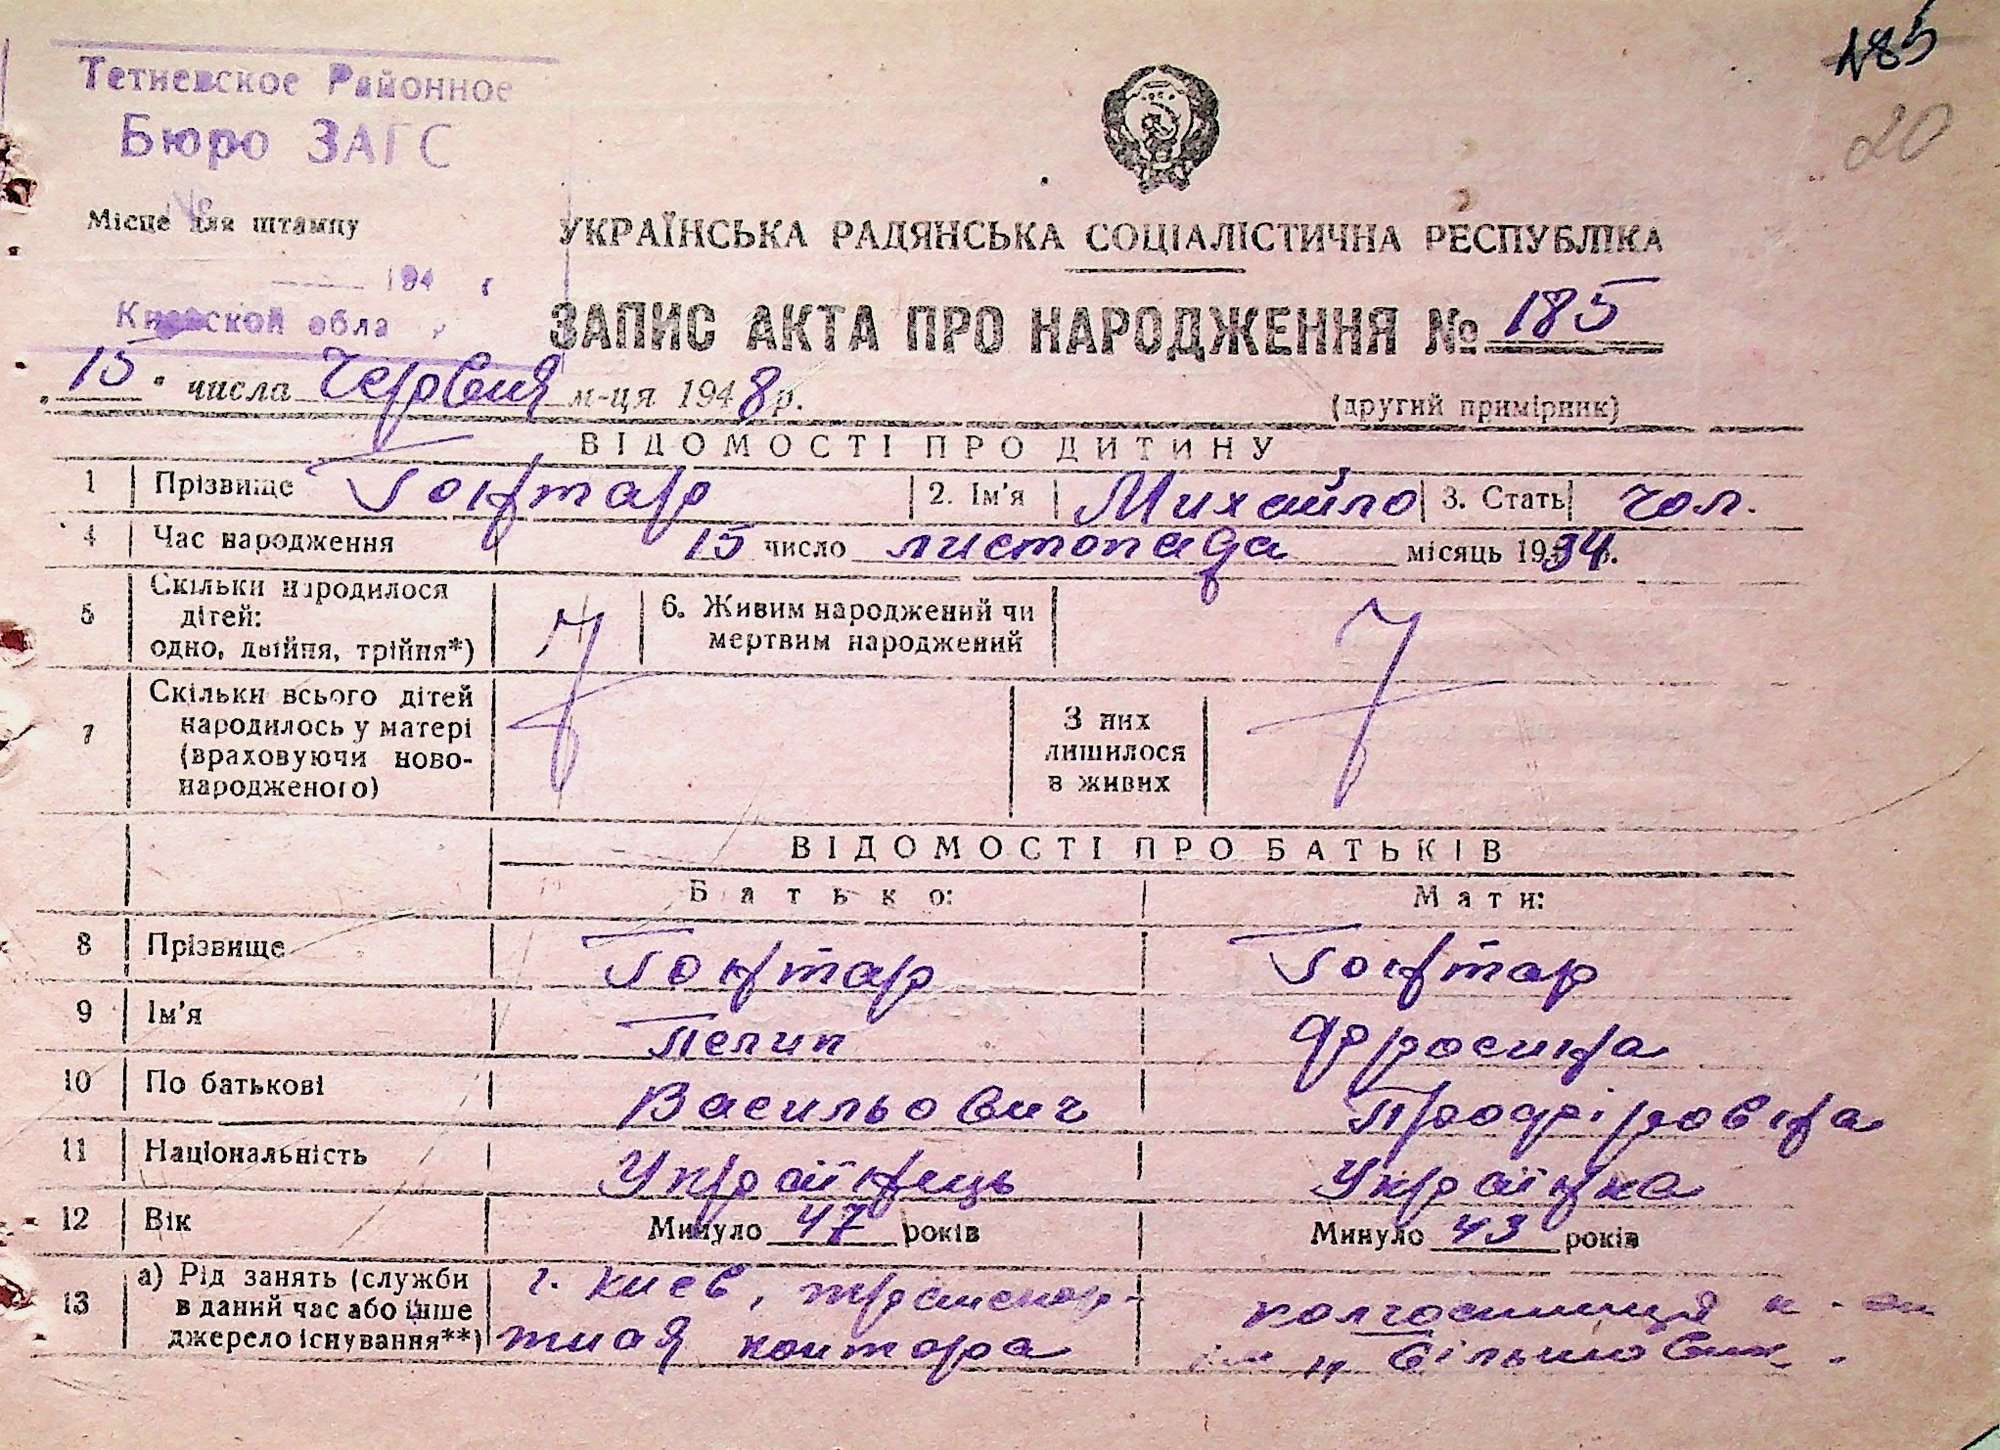 185
20
Тетиевское Районное
Бюро ЗАГС
№
Місце для штампу
194 г
Киевской обла
УКРАЇНСЬКА РАДЯНСЬКА СОЦІАЛІСТИЧНА РЕСПУБЛІКА
ЗАПИС АКТА ПРО НАРОДЖЕННЯ № 185
15 числа Червня м-ця 1948 р.
(другий примірник)
ВІДОМОСТІ ПРО ДИТИНУ
1 Прізвище Гонтар 2. Ім'я Михайло 3. Стать чол.
4 Час народження 15 число листопада місяць 1934 р.
5 Скільки народилося дітей: одно, двійня, трійня*)
6. Живим народжений чи мертвим народжений
7 Скільки всього дітей народилось у матері (враховуючи ново-народженого)
З них лишилося в живих
ВІДОМОСТІ ПРО БАТЬКІВ
Батько: Мати:
8 Прізвище Гонтар Гонтар
9 Ім'я Пелип Фросина
10 По батькові Васильович Профіровна
11 Національність Українець Українка
12 Вік Минуло 47 років Минуло 43 років
13 а) Рід занять (служби в даний час або інше джерело існування**)
г. Киев, транспор-
тная контора
колгоспниця
більшовик